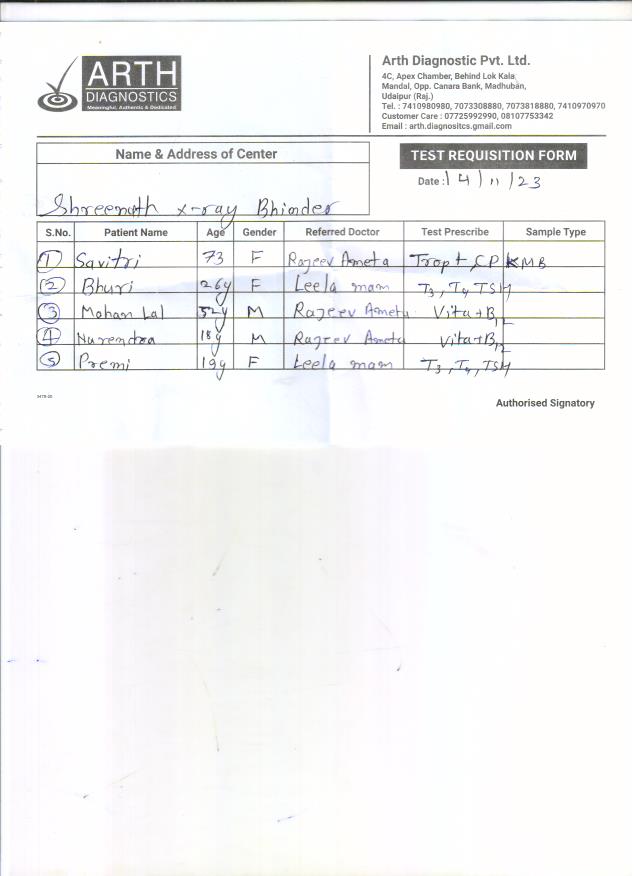 ARTH
DIAGNOSTICS
Meaningful, Authentic & Dedicated
Arth Diagnostic Pvt. Ltd.
4C, Apex Chamber, Behind Lok Kala
Mandal, Opp. Canara Bank, Madhuban,
Udaipur (Raj.)
Tel. : 7410980980, 7073308880, 7073818880, 7410970970
Customer Care : 07725992990, 08107753342
Email : arth.diagnositcs.gmail.com
Name & Address of Center
TEST REQUISITION FORM
Date : 14/11/23
Shreenath x-ray Bhinder
S.No. Patient Name Age Gender Referred Doctor Test Prescribe Sample Type
1 Savitri 73 F Rajeev Ameta Trop t, CPKMB
2 Bhuri 26y F Leela mam T3, T4 TSH
3 Mohan Lal 52y M Rajeev Ameta Vita+B12
4 Narendra 18y M Rajeev Ameta Vita+B12
5 Premi 19y F Leela mam T3, T4, TSH
Authorised Signatory